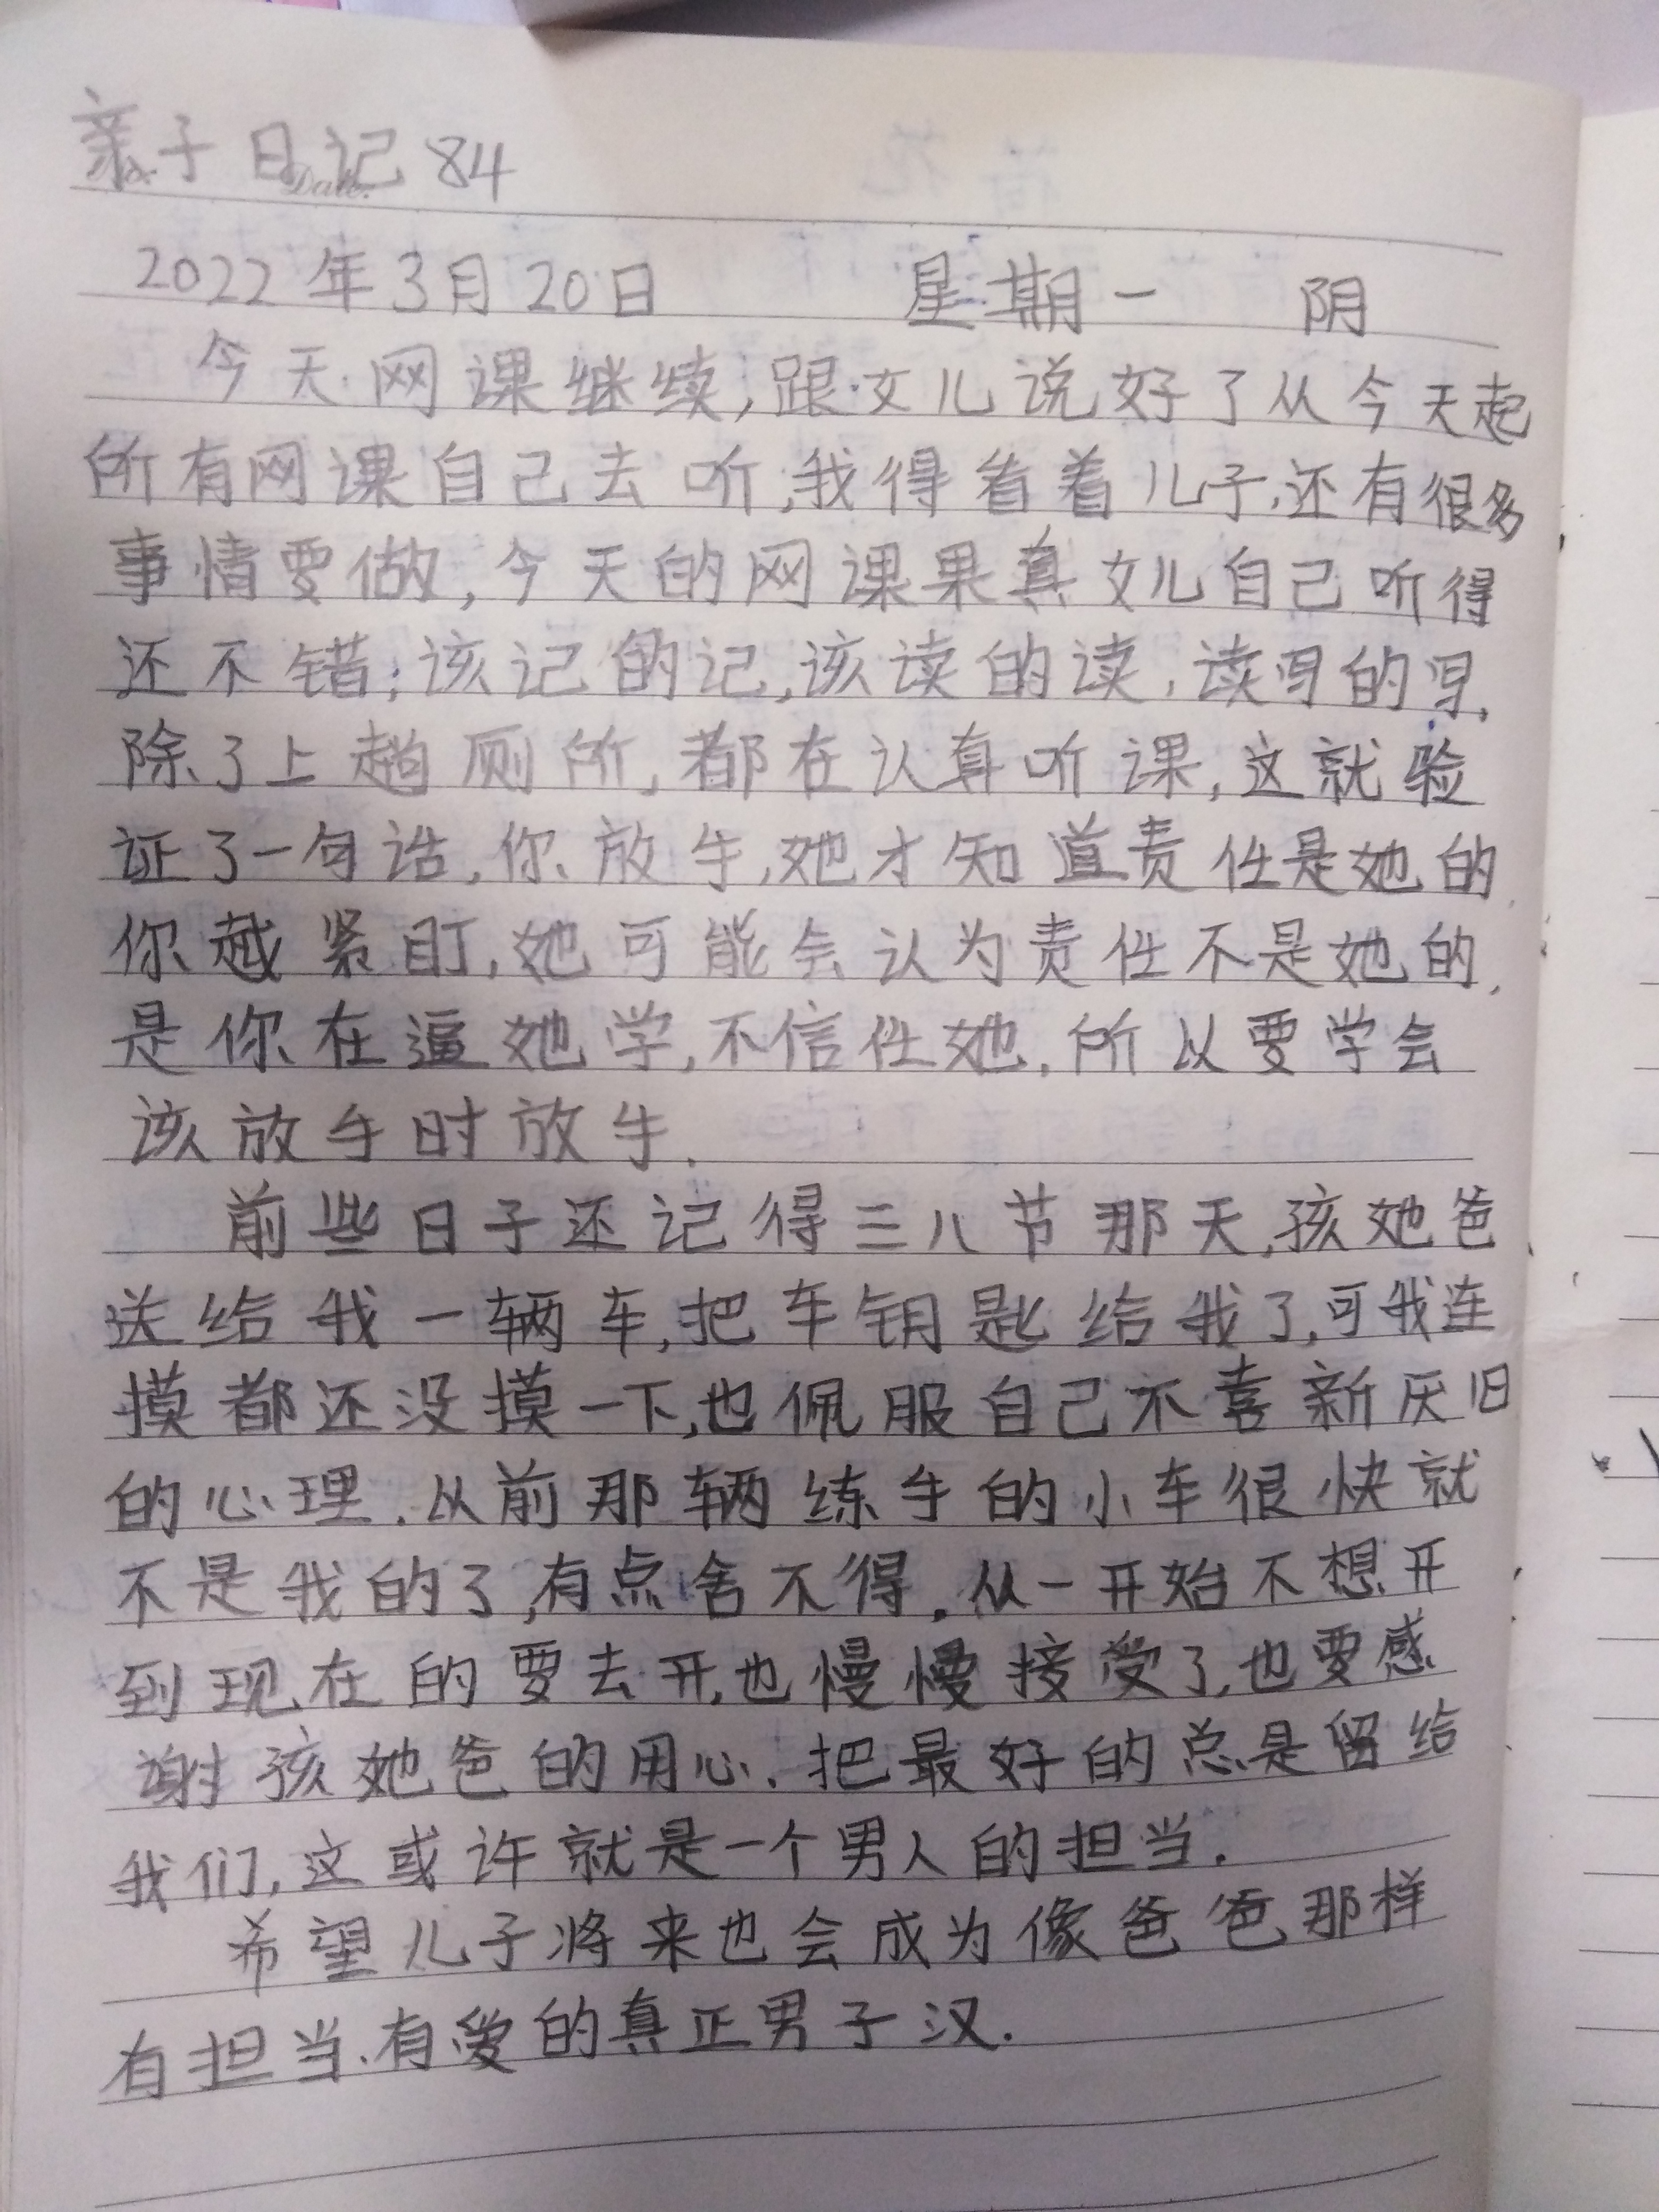 亲子日记84
2022年3月20日 星期一 阴
今天网课继续,跟女儿说好了从今天起
所有网课自己去听,我得看着儿子,还有很多
事情要做,今天的网课果真女儿自己听得
还不错;该记的记,该读的读,读写的写.
除了上趟厕所,都在认真听课,这就验
证了一句话,你放手,她才知道责任是她的,
你越紧盯,她可能会认为责任不是她的,
是你在逼她学,不信任她.所以要学会
该放手时放手.
前些日子还记得三八节那天,孩她爸
送给我一辆车,把车钥匙给我了,可我连
摸都还没摸一下,也佩服自己不喜新厌旧
的心理.从前那辆练手的小车很快就
不是我的了,有点舍不得.从一开始不想开
到现在的要去开,也慢慢接受了,也要感
谢孩她爸的用心.把最好的总是留给
我们,这或许就是一个男人的担当.
希望儿子将来也会成为像爸爸那样
有担当、有爱的真正男子汉.